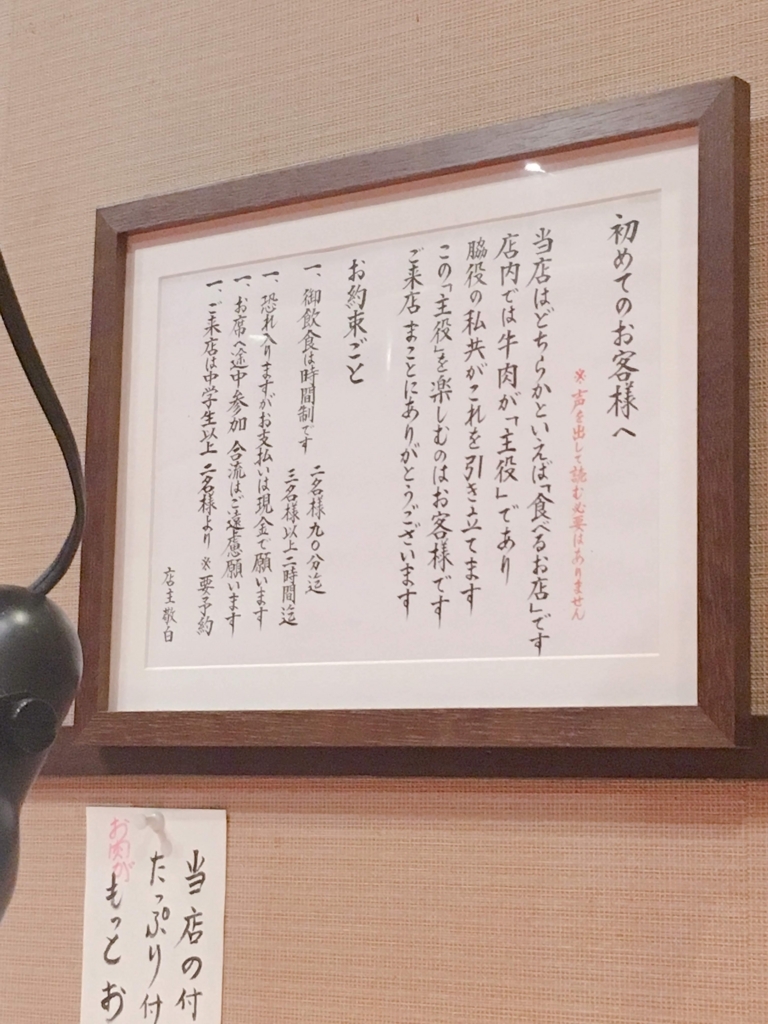 初めてのお客様へ
※声を出して読む必要はありません
当店はどちらかといえば「食べるお店」です
店内では牛肉が「主役」であり
脇役の私共がこれを引き立てます
この「主役」を楽しむのはお客様です
ご来店 まことにありがとうございます
お約束ごと
一、御飲食は時間制です 二名様九〇分迄
三名様以上二時間迄
一、恐れ入りますがお支払いは現金で願います
一、お席へ途中参加 合流はご遠慮願います
一、ご来店は中学生以上 二名様より ※要予約
店主敬白
当店の付
たっぷり付
お肉が もっとお